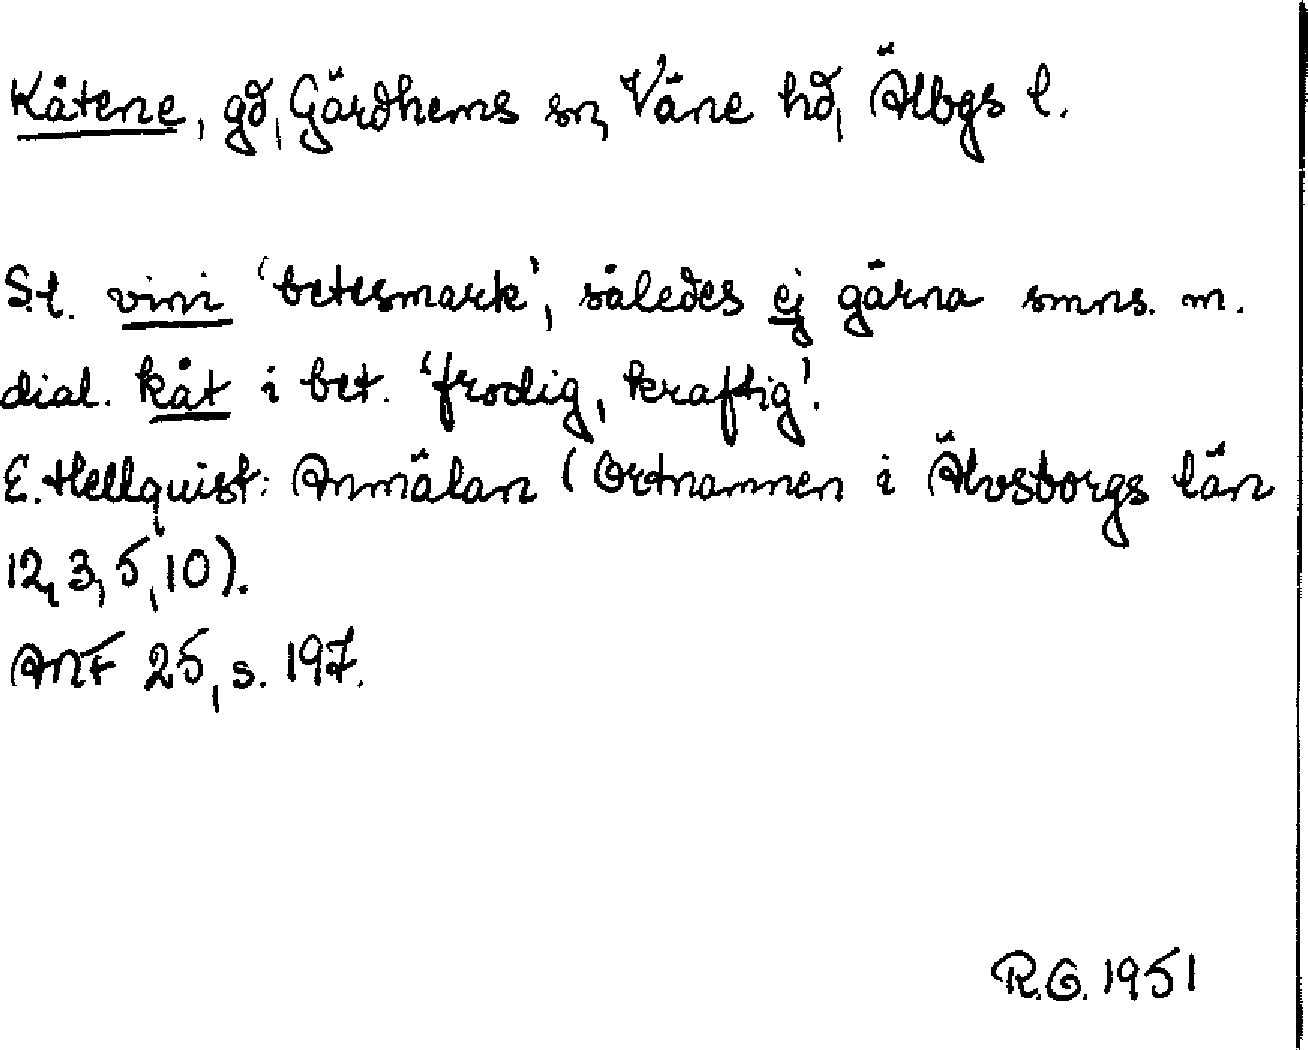 Kåtene, gd, Gärdhems sn, Väne hd, Älbgs l.
S.l. vini 'betesmark', således ej gärna smns. m.
dial. kåt i bet. 'frodig, kraftig'.
E. Hellquist: Anmälan (Ortnamnen i Älvsborgs län
12, 3, 5, 10).
ANF 25, s. 197.
R.G. 1951